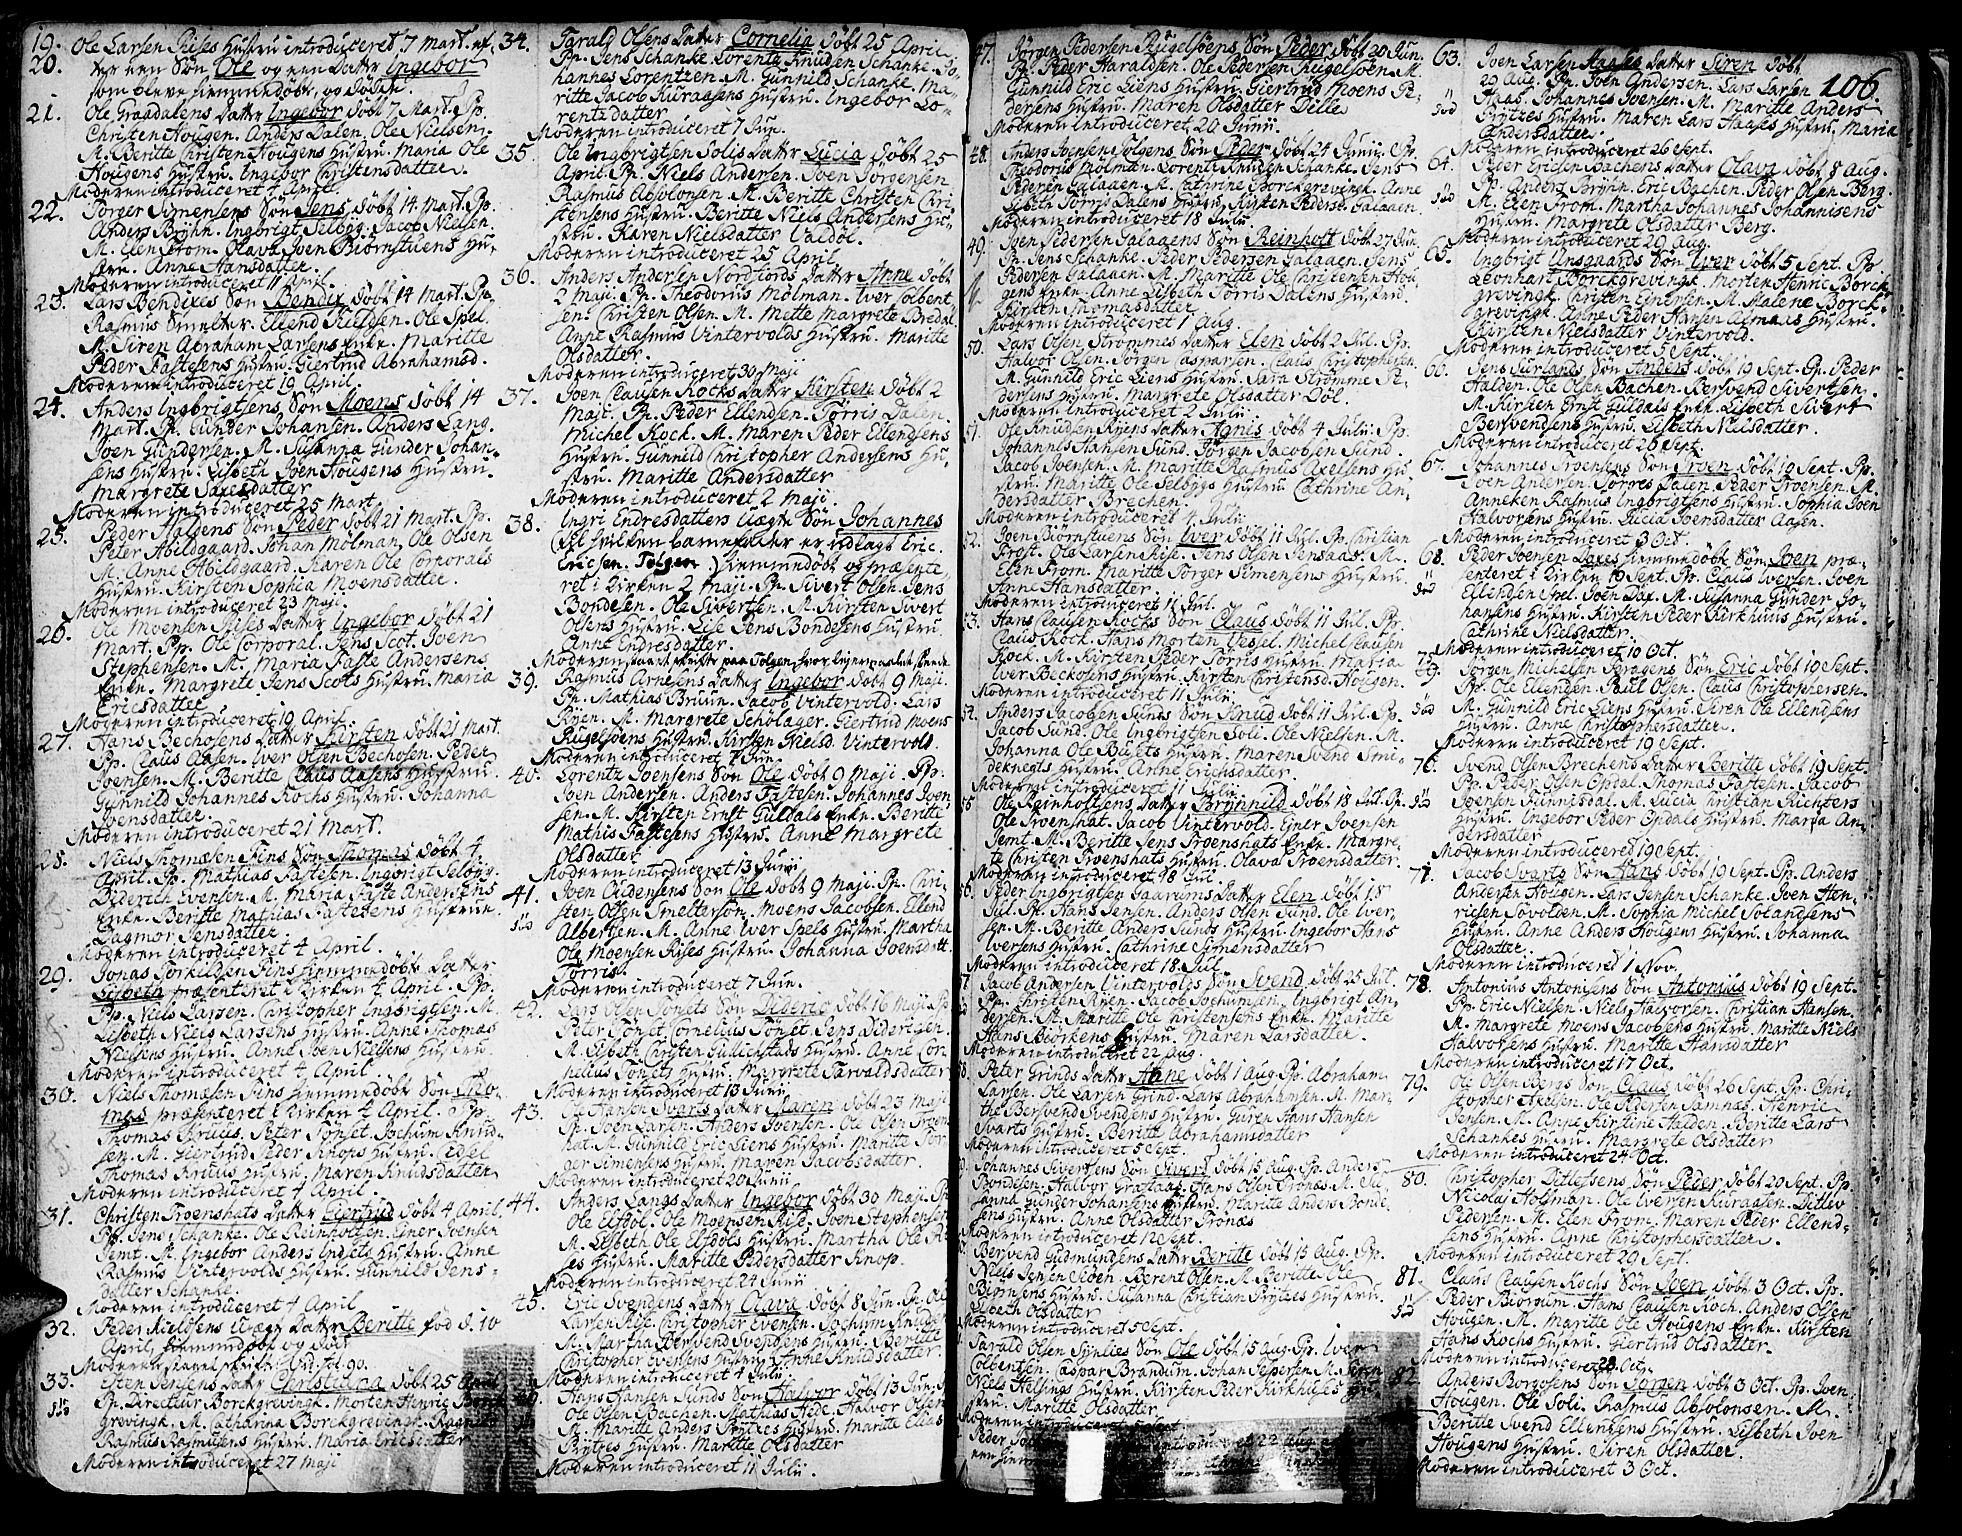 19. Ole Larsen Riises Hustru introduceret 7 Mart. ef-
20. ter een Søn Ole og een Datter Ingebor
som bleve hiemmedøbt, og døde.
21. Ole Graadalens Datter Ingebor døbt 7 Mart. Pp.
Christen Hougen. Anders Dalen. Ole Nielsen.
M. Beritte Christen Hougens Hustru. Maria Ole
Hougens Hustru. Ingebor Christensdatter.
Moderen introduceret 4 April.
22. Törger Simensens Søn Jens døbt 14 Mart. Pp.
Anders Brÿhn. Ingbrigt Selbÿg. Jacob Nielsen.
M. Elen From. Olava Joen Biörnstuens Hu-
stru. Anne Hansdatter.
Moderen introduceret 11 April.
23. Lars Bendixes Søn Bendix døbt 14 Mart. Pp.
Rasmus Smelter. Ellend Kieldsen. Ole Spel.
M. Siren Abraham Larsens Enke. Maritte
Peder Fastesens Hustru. Giertrud Abrahamsd.
Moderen introduceret 19 April.
24. Anders Ingbrigtsens Søn Moens døbt 14
Mart. Pp. Gunder Johansen. Anders Lang.
Joen Gundersen. M. Susanna Gunder Johan-
sens Hustru. Lisbeth Joen Hougens Hustru.
Margrete Saxesdatter
Moderen introduceret 25 Mart.
25. Peder Halgens Søn Peder døbt 21 Mart. Pp.
Peter Abildgaard. Johan Mölman. Ole Olsen
M. Anne Abildgaard. Karen Ole Corporals
Hustru. Kirsten Sophia Moensdatter.
Moderen introduceret 23 Maji.
26. Ole Moensen Riises Datter Ingebor døbt 21
Mart. Pp. Ole Corporal. Jens Scot. Joen
Stephensen. M. Maria Faste Andersens
Enke. Margrete Jens Scots Hustru. Maria
Ericsdatter
Moderen introduceret 19 April.
27. Hans Bechosens Datter Kirsten døbt 21 Mart.
Pp. Claus Aasen. Iver Olsen Bechosen. Peder
Joensen. M. Beritte Claus Aasens Hustru.
Gunnild Johannes Kochs Hustru. Johanna
Joensdatter.
Moderen introduceret 21 Mart.
28. Niels Thomæsen Fins Søn Thomas døbt 4
April. Pp. Mathias Fastesen. Ingbrigt Selbÿg.
Diderich Evensen. M. Maria Faste Andersens
Enke. Beritte Mathias Fastesens Hustrue.
Dagmor Jensdatter.
Moderen introduceret 4 April.
29. Jonas Torkildsen Fins hiemmedøbt Datter
Lisbeth præsenteret i Kirken 4 April. Pp.
Pp. Niels Larsen. Christopher Ingbrigtsen. M.
Lisbeth Niels Larsens Hustru. Anne Thomas
Nielsens Hustru. Anne Joen Nielsens Hustru.
Moderen introduceret 4 April
30. Niels Thomæsen Fins hiemmedøbt Søn Tho-
mas præsenteret i Kirken 4 April. Pp.
Thomas Kruus. Peter Tönset. Jochum Knud-
sen. M. Giertrud Peder Knops Hustru. Sidsel
Thomas Kruus Hustru. Maren Knudsdatter
Moderen introduceret 4 April.
31. Christen Troenshats Datter Giertrud døbt 4 April.
Pp. Jens Schanke. Ole Reinholtsen. Einer Joensen
Jemt. M. Ingebor Anders Indsets Hustru. Anne
Rasmus Vintervolds Hustru. Gunhild Jens-
datter Schanke.
Moderen introduceret 4 April
32. Peder Kieldsens uægte Datter Beritte fød d. 10
April, hiemmedøbt og død
33. Esten Jensens Datter Christiana døbt 25 April
død Pp. Directeur Borckgrevingk. Morten Henric Borck
grevingk. M. Catharina Borckgrevingk. Ragnild
Rasmus Rasmusens Hustru. Maria Ericsdatter
Moderen introduceret 27 Maji
34. Tarald Olsens Datter Cornelia døbt 25 April
Pp. Jens Schanke. Lorentz Knudsen Schanke. Jo-
hannes Lorentzen. M. Gunnild Schanke. Ma-
ritte Jacob Kuraasens Hustru. Ingebor Lo-
rentzdatter
Moderen introduceret 7 Jun.
35. Ole Ingbrigtsen Solis Datter Lucia døbt 25
April. Pp. Niels Andersen. Joen Jörgensen
Rasmus Absolonsen. M. Beritte Christen Chri-
stensens Hustru. Beritte Niels Andersens Hu-
stru. Karen Nielsdatter Valdöl.
Moderen introduceret 25 April.
36. Anders Andersen Nordfjords Datter Anne døbt
2 Maji. Pp. Theodorus Mölman. Iver Colbent-
sen. Christen Olsen. M. Mette Margrete Bredal.
Anne Rasmus Vintervolds Hustru. Maritte
Olsdatter.
Moderen introduceret 30 Maji
37. Joen Clausen Kocks Datter Kirsten døbt 2
Maji. Pp. Peder Ellendsen. Torris Dalen.
Michel Kock. M. Maren Peder Ellendsens
Hustru. Gunnild Christopher Andersens Hu-
stru. Maritte Andersdatter
Moderen introduceret 2 Maji.
38. Ingri Endresdatters uægte Søn Johannes
(til hvilken barnefader er udlagt Eric
Ericsen. Tolgen.) hiemmedøbt og præsente-
ret i Kirken 2 Maji. Pp. Sivert Olsen. Jens
Bondesen. Ole Sivertsen. M. Kirsten Sivert
Olsens Hustru. Lise Jens Bondesens Hustru.
Anne Endresdatter.
39. Rasmus Arnesens Datter Ingebor døbt 9 Maji.
Pp. Mathias Bruun. Jacob Vintervold. Lars
Rÿen. M. Margrete Schölager. Giertrud Moens
Rugelsjoens Hustru. Kirsten Nielsd. Vintervold.
Moderen introduceret 7 Jun.
40. Lorentz Joensens Søn Ole døbt 9 Maji. Pp.
Joen Andersen. Anders Fastesen. Johannes Joen
sen. M. Kirsten Ernst Guldals Enke. Beritte
Mathis Fastesens Hustru. Anne Margrete
Olsdatter
Moderen introduceret 13 Junii
41. Joen Oudensens Søn Ole døbt 9 Maji. Pp. Chri-
død sten Olsen Smeltersön. Moens Jacobsen. Ellend
Albertsen. M. Anne Iver Spels Hustru. Martha
Ole Moensen Riises Hustru. Johanna Joensdatt.
Torris.
Moderen introduceret 7 Jun.
42. Lars Olsen Tönsets Søn Dideric døbt 16 Maji. Pp.
Peter Tönset. Cornelius Tönset. Jens Diderigsen.
M. Elsbeth Christen Gullichstads Hustru. Anne Cor-
nelius Tönsets Hustru. Margrete Tarvaldsdatter
Moderen introduceret 13 Junii
43. Ole Hansen Svarts Datter Maren døbt 23 Maji
Pp. Joen Larsen. Anders Joensen. Ole Olsen Troen-
hat. M. Gunnild Eric Liens Hustru. Maritte Tör-
ger Simensens Hustru. Maren Jacobsdatter
Moderen introduceret 20 Junii
44. Anders Langs Datter Ingebor døbt 30 Maji. Pp.
Ole Elsdöl. Ole Moensen Riise. Joen Stephensen
M. Lisbeth Ole Elsdöls Hustru. Martha Ole Ri-
ses Hustru. Maritte Pedersdatter Knop.
Moderen introduceret 24 Junii
45. Eric Svendsens Datter Olava døbt 8 Jun. Pp. Ole
Larsen Riise. Christopher Evensen. Jochum Knudsen
M. Martha Bersvend Svendsens Hustru. Beritte
Christopher Evensens Hustru. Anne Knudsdatter
Moderen introduceret 4 Julii
46. Hans Hansen Sunds Søn Halvor døbt 13 Jun.
Ole Olsen Bachen. Mathias Hede. Halvor Olsen
M. Maritte Anders Prÿtzes Hustru. Maritte Elias
Prÿtzes Hustru. Maritte Olsdatter
Moderen introduceret 11 Julii.
47. Jörgen Pedersen Rugelsjoens Søn Peder døbt 20 Jun.
Pp. Peder Haraldsen. Ole Pedersen Rugelsjoen. M.
Gunnild Eric Liens Hustru. Giertrud Moens Pe-
dersens Hustru. Maren Olsdatter Dille
Moderen introduceret 20 Junii.
48. Anders Joensen Tolgens Søn Peder døbt 24 Junii. Pp.
Theodorus Mölman. Lorentz Knudsen Schanke. Jens
Pedersen Galaaen. M. Cathrine Borckgrevingk. Anne
Lisbeth Torris Dalens Hustru. Kirsten Pedersd. Galaaen.
Moderen introduceret 18 Julii
49. Joen Pedersen Galaaens Søn Reinholt døbt 27 Jun.
Pp. Jens Schanke. Peder Pedersen Galaaen. Jens
Pedersen Galaaen. M. Maritte Ole Christensen Hou-
gens Enke. Anne Lisbeth Torris Dalens Hustrud.
Kirsten Thomasdatter.
Moderen introduceret 1 Aug.
50. Lars Olsen Strömmes Datter Elen døbt 2 Jul. Pp.
Halvor Olsen. Jörgen Caspersen. Claus Christophersen.
M. Gunnild Eric Liens Hustru. Sara Strömme Pe-
dersens Hustru. Margrete Olsdatter Döl.
Moderen introduceret 2 Julii.
51. Ole Knudsen Rÿens Datter Agnis døbt 4 Julii. Pp.
Johannes Hansen Sund. Jörgen Jacobsen Sund.
Jacob Joensen. M. Maritte Rasmus Axelsens Hu-
stru. Maritte Ole Selbÿgs Hustru. Cathrine An-
dersdatter Brechen.
Moderen introduceret 4 Julii
52. Joen Biörnstuens Søn Iver døbt 11 Jul. Pp. Christian
Frost. Ole Larsen Riise. Jens Olsen Jensaas. M.
Elen From. Maritte Törger Simensens Hustru.
Anne Hansdatter.
Moderen introduceret 11 Jul.
53. Hans Clausen Kocks Søn Claus døbt 11 Jul. Pp.
Claus Kock. Hans Morten Vessel. Michel Clausen
Kock. M. Kirsten Peder Torris Hustru. Maria
Iver Beckosens Hustru. Kirsten Christensd. Hougen.
Moderen introduceret 11 Julii
54. Anders Jacobsen Sunds Søn Knud døbt 11 Jul. Pp.
Jacob Sund. Ole Ingbrigtsen Soli. Ole Nielsen. M.
Johanna Ole Busets Hustru. Maren Svend Smi-
deknegts Hustru. Anne Erichsdatter.
Moderen introduceret 11 Julii
55. Ole Reinholtsens Datter Brÿnnild døbt 18 Jul. Pp.
Ole Troenshat. Jacob Vintervold. Einer Joensen
Jemt. M. Beritte Jens Troenshats Enke. Margre-
te Christen Troenshats Hustru. Olava Troensdatter.
Moderen introduceret 18 Jul.
56. Peder Ingbrigtsen Gaarums Datter Elen døbt 18
Jul. Pp. Hans Jensen. Anders Olsen Sund. Ole Iver-
sen. M. Beritte Anders Sunds Hustru. Ingebor Hans
Iversens Hustru. Cathrine Simensdatter
Moderen introduceret 18 Jul.
57 Jacob Andersen Vintervolds Søn Svend døbt 25 Jul.
Pp. Christen Rÿen. Jacob Jochumsen. Ingbrigt An-
dersen. M. Maritte Ole Christensens Enke. Maritte
Hans Beörkens Hustru. Maren Larsdatter.
Moderen introduceret 22 Aug.
58. Peter Grinds Datter Anne døbt 1 Aug. Pp. Abraham
Larsen. Ole Larsen Grind. Lars Abrahamsen. M. Mar-
the Bersvend Svendsens Hustru. Guren Hans Hansen
Svarts Hustru. Beritte Abrahamsdatter
Moderen introduceret 5 Sept.
Johannes Sivertsens Søn Sivert døbt 15 Aug. Pp. Anders
Bondesen. Halvor Grastaas. Hans Olsen Tronæs. M. Su-
sanna Gunder Johansens Hustru. Maritte Anders Bonde-
sens Hustru. Anne Olsdatter Tronæs
Moderen introduceret 12 Sept.
Bersvend Gudmundsens Datter Beritte døbt 15 Aug. Pp.
Niels Jensen Skoen. Berent Olsen. M. Beritte Ole
Hustru. Susanna Christian Prÿtzes Hustru.
Lisbeth Olsdatter
Moderen introduceret 5 Sept.
Tarald Olsen Sÿnlies Søn Ole døbt 15 Aug. Pp. Iver
Colbentsen. Caspar Brandum. Johan Jespersen. M. Siren
Niels Helsings Hustru. Kirsten Peder Kirkhuses Hu-
stru. Maritte Olsdatter.
Moderen introduceret 5 Sept.
introduceret 22 Aug.
106.
63. Joen Larsen Haases Datter Siren døbt
29 Aug. Pp. Joen Andersen. Lars Larsen
død Haas. Johannes Joensen. M. Maritte Anders
Prÿtzes Hustru. Maren Lars Haases Hustru. Maria
Andersdatter.
Moderen introduceret 26 Sept.
64. Peder Ericsen Bachens Datter Olava døbt 8 Aug.
død Pp. Anders Brÿhn. Eric Bachen. Peder Olsen Berg.
M. Elen From. Martha Johannes Johannisens
Hustru. Margrete Olsdatter Berg.
Moderen introduceret 29 Aug.
65. Ingbrigt Unsgaards Søn Iver døbt 5 Sept. Pp.
Leonhart Borckgrevingk. Morten Henric Borck
grevingk. Christen Einersen. M. Malene Borck-
grevingk. Anne Peder Hansen Aimaas Hustru.
Kirsten Nielsdatter Vintervold.
Moderen introduceret 5 Sept.
66. Jens Surlands Søn Anders døbt 19 Sept. Pp. Peder
Halden. Ole Olsen Bachen. Bersvend Sivertsen.
M. Kirsten Ernst Guldals Enke. Lisbeth Sivert
Bersvendsens Hustru. Lisbeth Nielsdatter.
Moderen introduceret 26 Sept.
67. Johannes Troensens Søn Troen døbt 19 Sept. Pp.
Joen Andersen. Törges Dalen. Peder Troensen. M.
Anneken Rasmus Ingbrigtsens Hustru. Sophia Joen
Halvorsens Hustru. Lucia Joensdatter Aasen.
Moderen introduceret 3 Oct.
68. Peder Joensen Laxes hiemmedøbt Søn Joen præ-
senteret i Kirken 19 Sept. Pp. Claus Iversen. Joen
død Ellendsen Spel. Joen Lax. M. Susanna Gunder Jo-
hansens Hustru. Kirsten Peder Kirkhuus Hustru.
Cathrine Nielsdatter.
Moderen introduceret 10 Oct.
Jörgen Michelsen Feragens Søn Eric døbt 19 Sept.
Pp. Ole Ellendsen. Paul Olsen. Claus Christophersen.
død M. Gunnild Eric Liens Hustru. Siren Ole Ellendsens
Hustru. Anne Christophersdatter.
Moderen introduceret 19 Sept.
76. Svend Olsen Brechens Datter Beritte døbt 19 Sept.
Pp. Peder Olsen Opdal. Thomas Fastesen. Jacob
død Joensen Funnisdal. M. Lucia Christian Richters
Hustru. Ingebor Peder Opdals Hustru. Maria An-
dersdatter
Moderen introduceret 19 Sept.
77. Jacob Svarts Søn Hans døbt 19 Sept. Pp. Anders
Andersen Hougen. Lars Jensen Schanke. Joen Hen-
ricsen Sovolden. M. Sophia Michel Solandsens
Hustru. Anne Anders Hougens Hustru. Johanna
Olsdatter.
Moderen introduceret 1 Nov.
78. Antonius Antonisens Søn Antonius døbt 19 Sept.
Pp. Eric Nielsen. Niels Halvorsen. Christian Hansen.
M. Margrete Moens Jacobsens Hustru. Maritte Niels
Halvorsens Hustru. Maritte Hansdatter
Moderen introduceret 17 Oct.
79. Ole Olsen Bergs Søn Claus døbt 26 Sept. Pp. Chri-
stopher Axelsen. Ole Pedersen Samnæs. Henric
Jensen. M. Anne Kirstine Halden. Beritte Lars
Schankes Hustru. Margrete Olsdatter
Moderen introduceret 24 Oct.
80. Christopher Ditlefsens Søn Peder døbt 20 Sept. Pp.
Nicolaj Holtman. Ole Iversen Kuraasen. Ditlev
Pedersen. M. Elen From. Maren Peder Ellend-
sens Hustru. Anne Christophersdatter.
Moderen introduceret 29 Sept.
81. Claus Clausen Kochs Søn Joen døbt 3 Oct. Pp.
død Peder Biörgum. Hans Clausen Koch. Anders Olsen
Hougen. M. Maritte Ole Hougens Enke. Kirsten
Hans Kochs Hustru. Giertrud Olsdatter.
Moderen introduceret 28 Oct.
82. Anders Borgosens Søn Jörgen døbt 3 Oct. Pp. Joen
Hougen. Ole Soli. Rasmus Absolonsen. M.
Beritte Svend Ellendsens Hustru. Lisbeth Joen
Hougens Hustru. Siren Olsdatter.
Moderen introduceret 3 Oct.